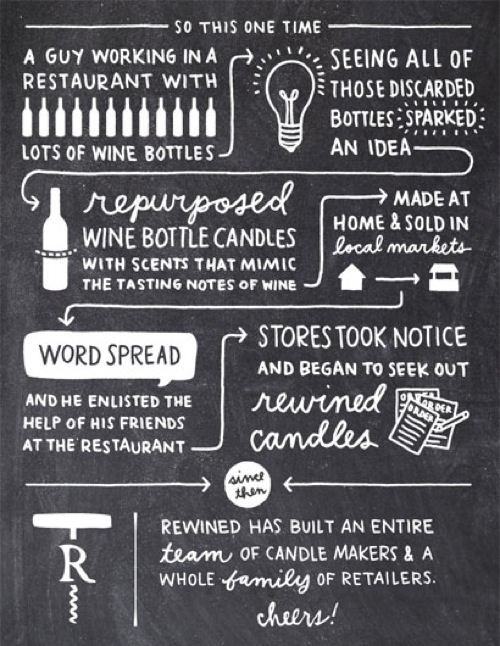 SO THIS ONE TIME
A GUY WORKING IN A
RESTAURANT WITH
LOTS OF WINE BOTTLES
SEEING ALL OF
THOSE DISCARDED
BOTTLES SPARKED
AN IDEA
repurposed
WINE BOTTLE CANDLES
WITH SCENTS THAT MIMIC
THE TASTING NOTES OF WINE
MADE AT
HOME & SOLD IN
local markets
WORD SPREAD
AND HE ENLISTED THE
HELP OF HIS FRIENDS
AT THE RESTAURANT
STORES TOOK NOTICE
AND BEGAN TO SEEK OUT
rewined
candles
ORDER
ORDER
ORDER
since
then
R
REWINED HAS BUILT AN ENTIRE
team OF CANDLE MAKERS & A
WHOLE family OF RETAILERS.
cheers!